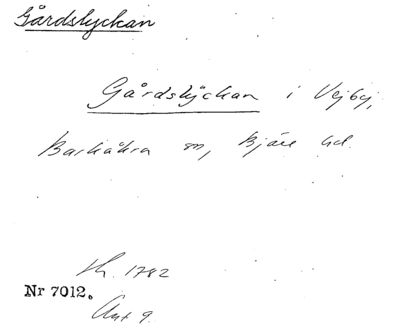 Gårdslyckan
Gårdslyckan i Vejby,
Barkåkra sn, Bjäre hd.
Sk. 1782
Nr 7012.
Akt 9.